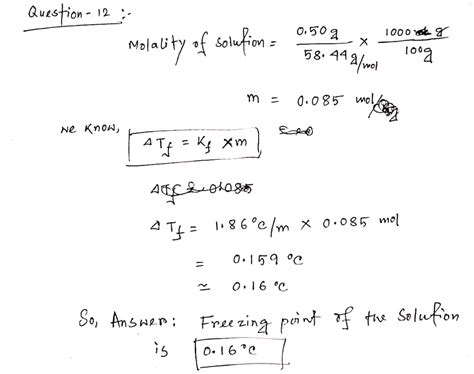 Question-12 :-
Molality of solution = 0.50 g / 58.44 g/mol × 1000 g / 100g
m = 0.085 mol/
We know,
ΔTf = Kf × m
ΔTf = 1.86°C/m × 0.085 mol
= 0.159 °C
≃ 0.16 °C
So, Answer: Freezing point of the solution
is 0.16°C